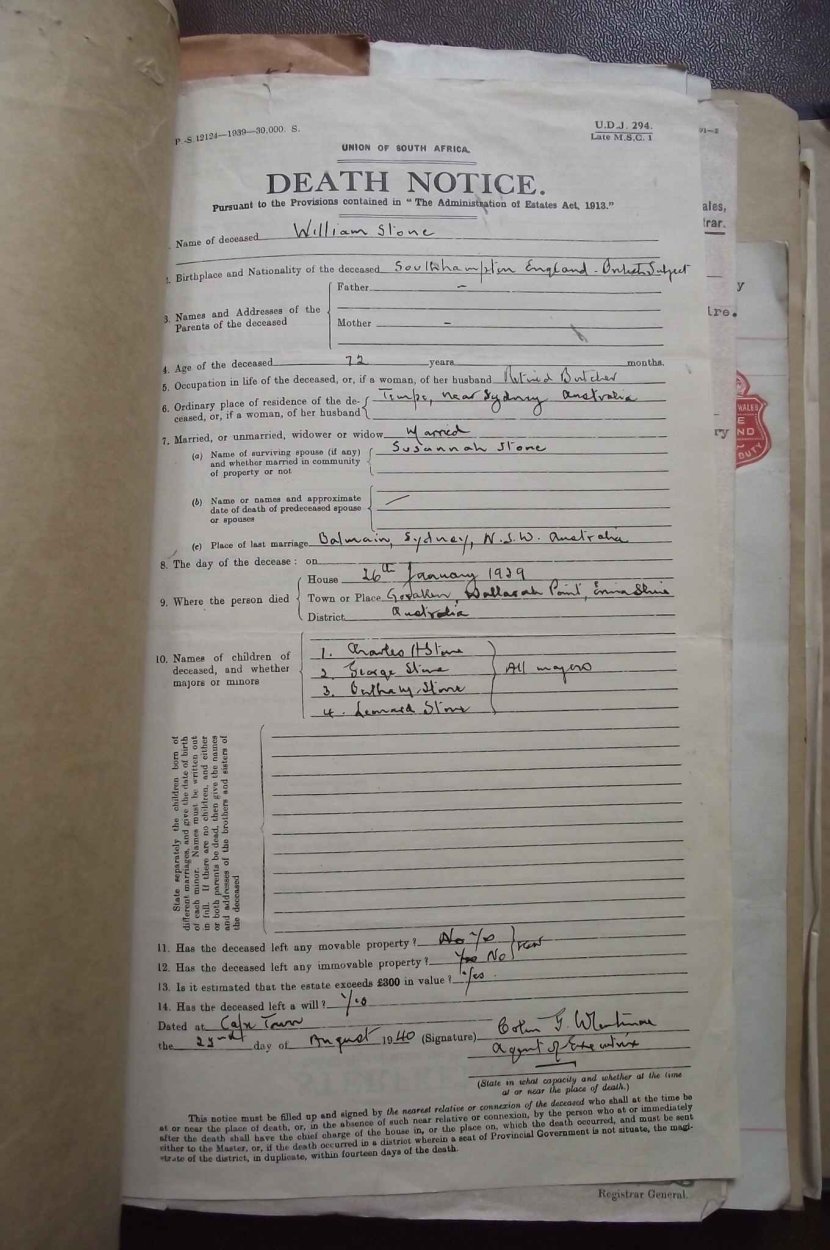 P.-S. 12124—1939—30,000. S.
U.D.J. 294.
Late M.S.C. 1
UNION OF SOUTH AFRICA.
DEATH NOTICE.
Pursuant to the Provisions contained in "The Administration of Estates Act, 1913."
Name of deceased William Stone
2. Birthplace and Nationality of the deceased Southampton England - British Subject
3. Names and Addresses of the Parents of the deceased
Father –
Mother –
4. Age of the deceased 72 years months.
5. Occupation in life of the deceased, or, if a woman, of her husband Retired Butcher
6. Ordinary place of residence of the de-
ceased, or, if a woman, of her husband
Tempe, near Sydney Australia
7. Married, or unmarried, widower or widow Married
(a) Name of surviving spouse (if any)
and whether married in community
of property or not
Susannah Stone
(b) Name or names and approximate
date of death of predeceased spouse
or spouses
(c) Place of last marriage Balmain, Sydney, N.S.W. Australia
8. The day of the decease: on
9. Where the person died
House 26th January 1939
Town or Place Wallarah Point,
District Australia
10. Names of children of
deceased, and whether
majors or minors
1. Charles H Stone
2. George Stone
3. Stone
4. Leonard Stone
All majors
State separately the children born of
different marriages, and give the date of birth
of each minor. Names must be written out
in full. If there are no children, and either
or both parents be dead, then give the names
and addresses of the brothers and sisters of
the deceased
11. Has the deceased left any movable property? No Yes
12. Has the deceased left any immovable property? Yes No
13. Is it estimated that the estate exceeds £300 in value? Yes.
14. Has the deceased left a will? Yes
Dated at Cape Town
the 22nd day of August 1940 (Signature) Colin
Agent of Executrix
(State in what capacity and whether at the time
at or near the place of death.)
This notice must be filled up and signed by the nearest relative or connexion of the deceased who shall at the time be
at or near the place of death, or, in the absence of such near relative or connexion, by the person who at or immediately
after the death shall have the chief charge of the house in, or the place on, which the death occurred, and must be sent
either to the Master, or, if the death occurred in a district wherein a seat of Provincial Government is not situate, the magi-
strate of the district, in duplicate, within fourteen days of the death.
Registrar General.